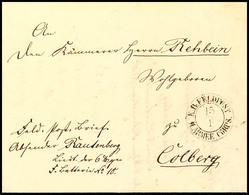 An
den Kämmerer Herrn Rehbein
Wohlgeboren
zu
Colberg
K.PR.FELDPOST
15
1
II. ARMEE CORPS.
Feld-Post-Brief.
Absender Rautenberg
Lieut. der
F. Batterie No. 10.